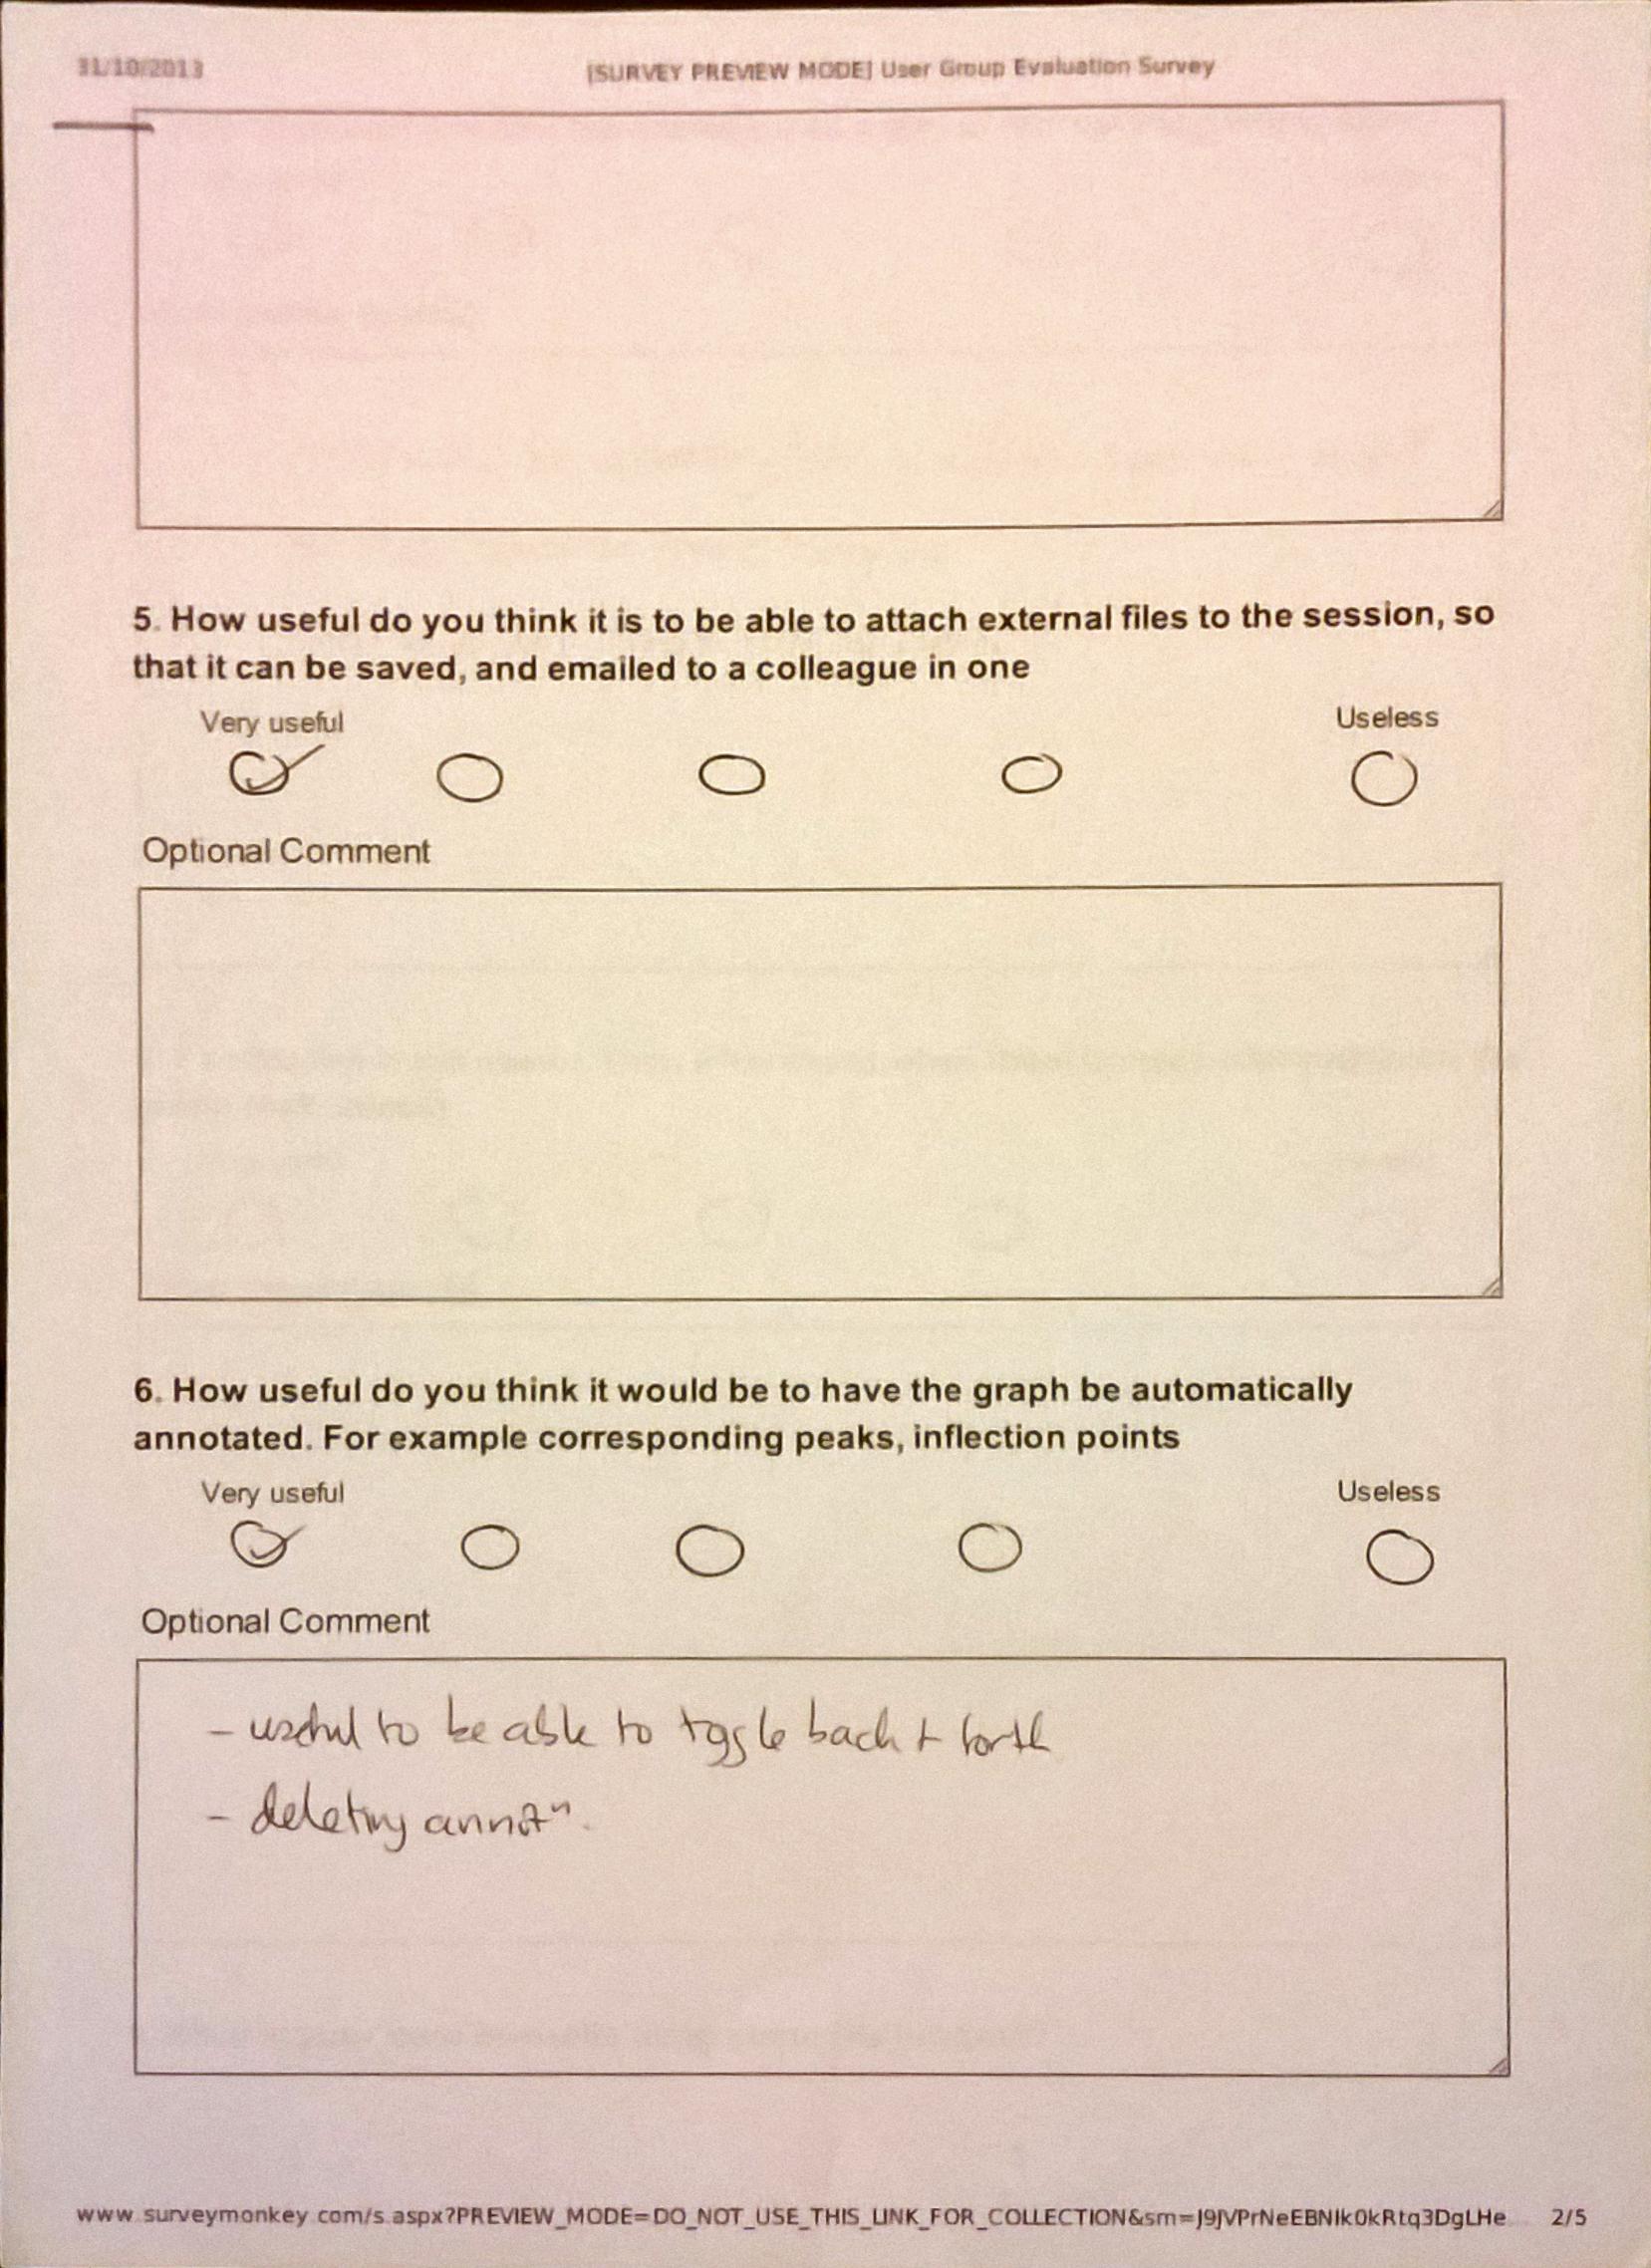 31/10/2013 [SURVEY PREVIEW MODE] User Group Evaluation Survey
5. How useful do you think it is to be able to attach external files to the session, so
that it can be saved, and emailed to a colleague in one
Very useful Useless
Optional Comment
6. How useful do you think it would be to have the graph be automatically
annotated. For example corresponding peaks, inflection points
Very useful Useless
Optional Comment
- useful to be able to toggle back + forth
- deleting annotⁿ.
www.surveymonkey.com/s.aspx?PREVIEW_MODE=DO_NOT_USE_THIS_LINK_FOR_COLLECTION&sm=J9JVPrNeEBNIk0kRtq3DgLHe 2/5